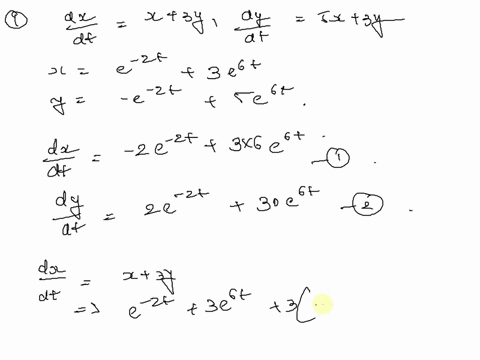 ① dx/dt = x+3y, dy/dt = 5x+3y
x = e^{-2t} + 3e^{6t}
y = -e^{-2t} + 5e^{6t}.
dx/dt = -2e^{-2t} + 3×6e^{6t} —①.
dy/dt = 2e^{-2t} + 30e^{6t} —②.
dx/dt = x+3y
=> e^{-2t} + 3e^{6t} + 3(